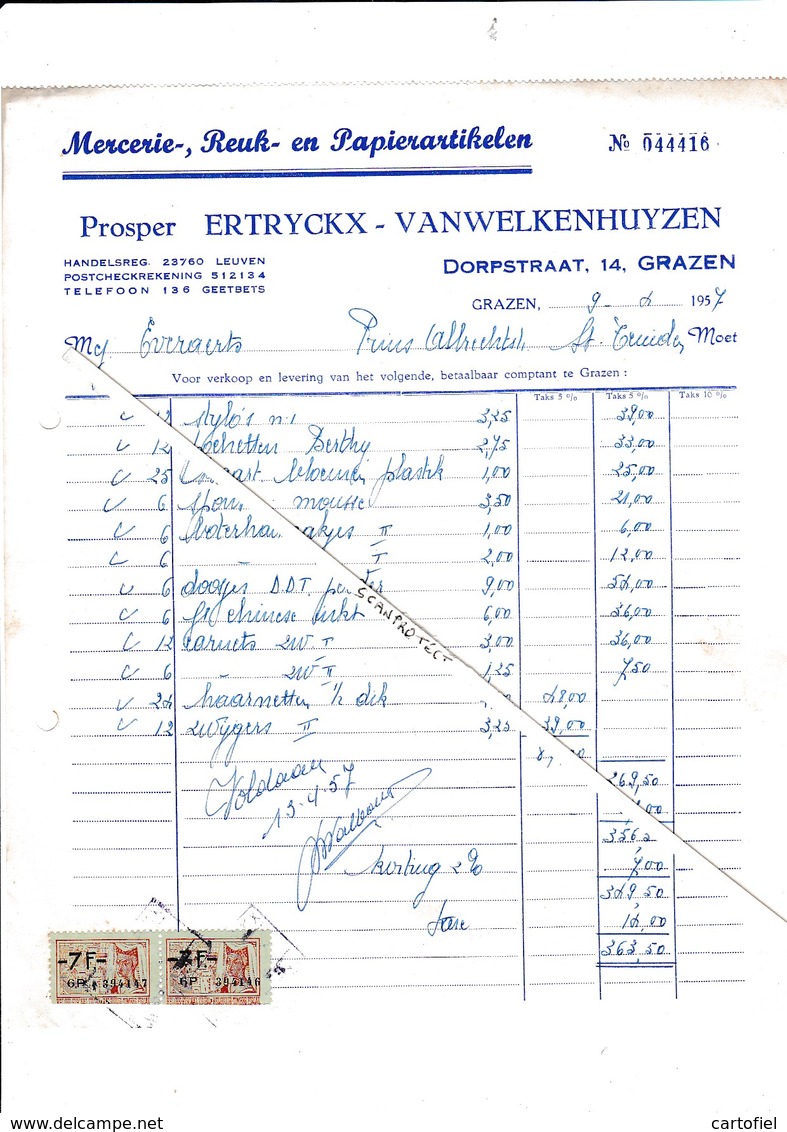 Mercerie-, Reuk- en Papierartikelen
No 044416
Prosper ERTRYCKX - VANWELKENHUYZEN
HANDELSREG. 23760 LEUVEN
POSTCHECKREKENING 512134
TELEFOON 136 GEETBETS
DORPSTRAAT, 14, GRAZEN
GRAZEN, 9-4 1957
Mej Everaerts Prins Albrechtstr St. Truiden Moet
Voor verkoop en levering van het volgende, betaalbaar comptant te Grazen :
Taks 5 % Taks 5 % Taks 10 %
12 stylo's n 1 3,25 39,00
12 Berthy 2,75 33,00
25 bloemen plastik 1,00 25,00
6 mousse 3,50 21,00
6 II 1,00 6,00
6 - I 2,00 12,00
6 doosjes D.D.T. 9,00 54,00
6 fl chinese inkt 6,00 36,00
12 carnets 2W I 3,00 36,00
6 - 2W II 1,25 7,50
24 haarnetten 1/2 dik 48,00
12 zwijgers II 3,25 39,00
SCANPROTECT
269,50
Voldaan
13.4.57
356,50
korting 2% 7,00
349,50
taxe 14,00
363,50
-7F- -7F-
6P 394147 6P 394146
www.delcampe.net
cartofiel